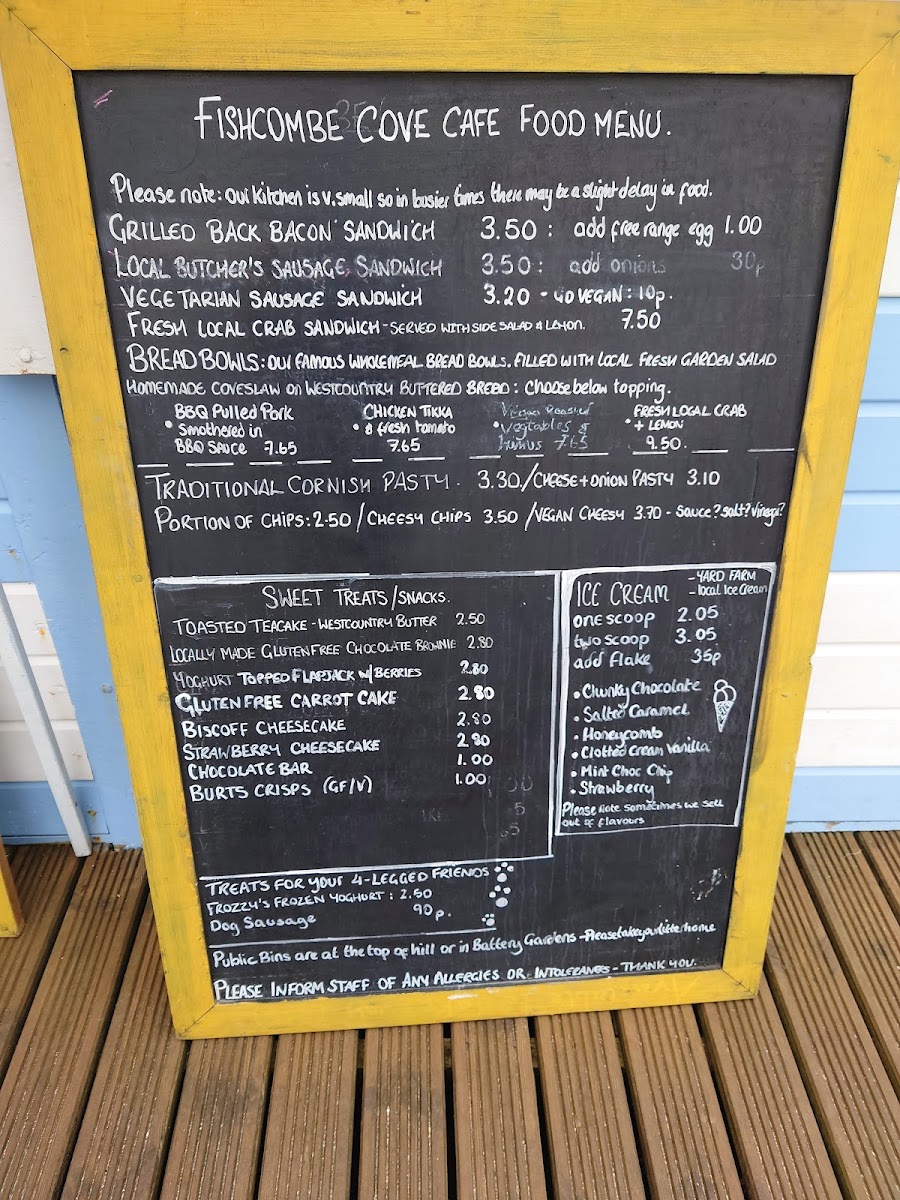 FISHCOMBE COVE CAFE FOOD MENU.
Please note: our kitchen is v. small so in busier times there may be a slight delay in food.
GRILLED BACK BACON SANDWICH 3.50 : add free range egg 1.00
LOCAL BUTCHER'S SAUSAGE SANDWICH 3.50 : add onions 30p
VEGETARIAN SAUSAGE SANDWICH 3.20 - GO VEGAN : 10p.
FRESH LOCAL CRAB SANDWICH - SERVED WITH SIDE SALAD & LEMON. 7.50
BREAD BOWLS : OUR FAMOUS WHOLEMEAL BREAD BOWLS. FILLED WITH LOCAL FRESH GARDEN SALAD
HOMEMADE COVESLAW on WESTCOUNTRY BUTTERED BREAD : Choose below topping.
• BBQ Pulled Pork Smothered in BBQ SAUCE 7.65
• CHICKEN TIKKA & fresh tomato 7.65
• Vegan Roasted Vegtables & humus 7.65
• FRESH LOCAL CRAB + LEMON 9.50.
TRADITIONAL CORNISH PASTY. 3.30./CHEESE + ONION PASTY 3.10
PORTION OF CHIPS: 2.50 / CHEESY CHIPS 3.50 / VEGAN CHEESY 3.70 - Sauce? salt? Vinegar?
SWEET TREATS/SNACKS.
TOASTED TEACAKE - WESTCOUNTRY BUTTER 2.50
LOCALLY MADE GLUTEN FREE CHOCOLATE BROWNIE 2.80
YOGHURT TOPPED FLAPJACK W/ BERRIES 2.80
GLUTEN FREE CARROT CAKE 2.80
BISCOFF CHEESECAKE 2.80
STRAWBERRY CHEESECAKE 2.80
CHOCOLATE BAR 1.00
BURTS CRISPS (GF/V) 1.00
ICE CREAM - YARD FARM
- local Ice Cream
one scoop 2.05
two scoop 3.05
add Flake 35p
• Chunky Chocolate
• Salted Caramel
• Honeycomb
• Clotted Cream Vanilla
• Mint Choc Chip
• Strawberry
Please Note sometimes we sell
out of flavours
TREATS FOR YOUR 4-LEGGED FRIENDS
FROZZY'S FROZEN YOGHURT : 2.50
Dog Sausage 90p.
Public Bins are at the top of hill or in Battery Gardens - Please take your litter home
PLEASE INFORM STAFF OF ANY ALLERGIES OR INTOLERANCES - THANK YOU.